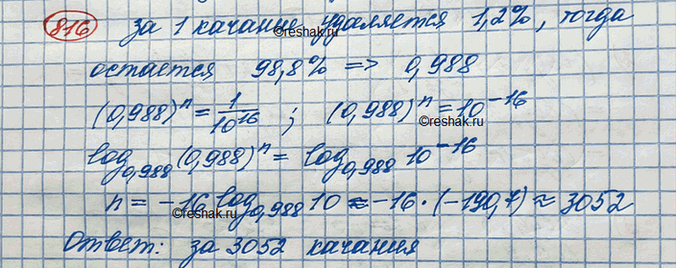 816 за 1 качание удаляется 1,2%, тогда
остается 98,8% => 0,988
(0,988)^n = 1/10^16 ; (0,988)^n = 10^-16
log_0,988 (0,988)^n = log_0,988 10^-16
n = -16 log_0,988 10 ≈ -16 · (-190,7) ≈ 3052
Ответ: за 3052 качания
©reshak.ru
©reshak.ru
©reshak.ru
©reshak.ru